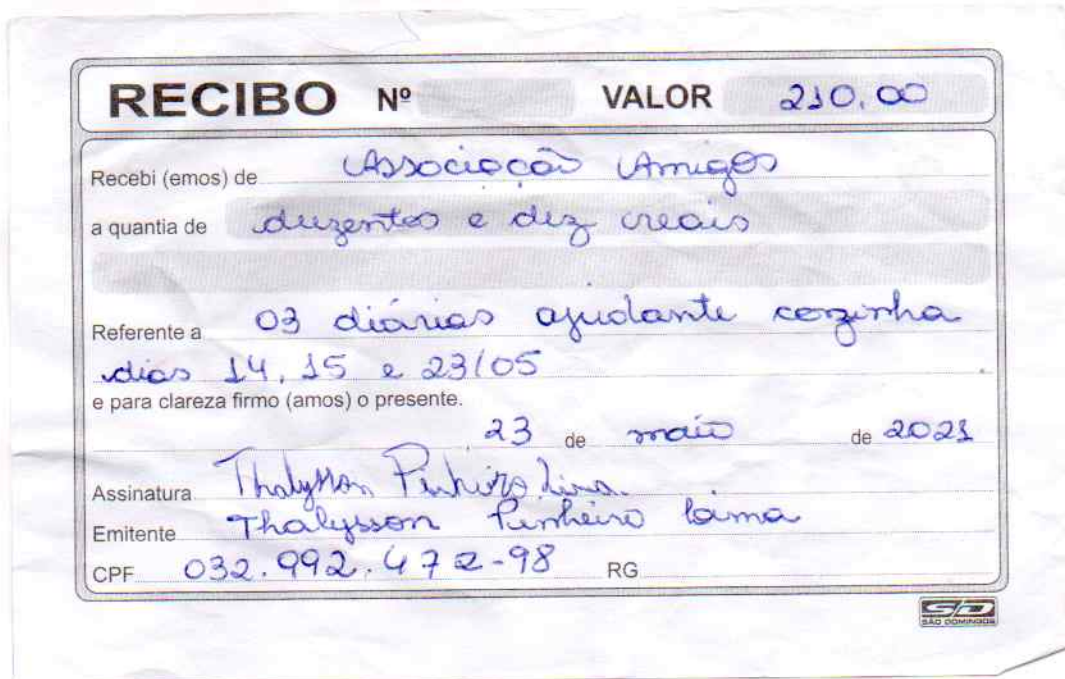 RECIBO Nº VALOR 210,00
Recebi (emos) de Associação Amigos
a quantia de duzentos e dez reais
Referente a 03 diárias ajudante cozinha
dias 14, 15 e 23/05
e para clareza firmo (amos) o presente.
23 de maio de 2021
Assinatura Thalysson Pinheiro Lima.
Emitente Thalysson Pinheiro Lima
CPF 032.992.472-98 RG
SD
SÃO DOMINGOS